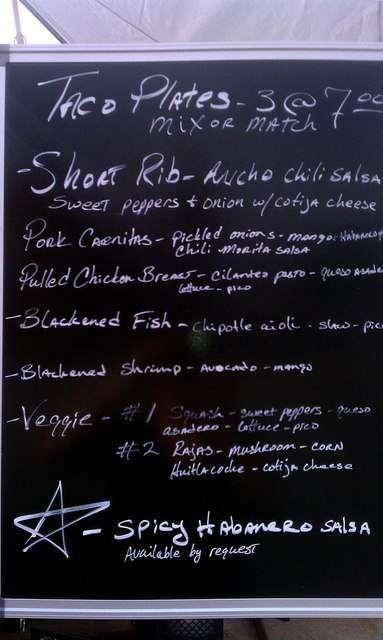 Taco Plates - 3 @ 7.00
mix or match
- Short Rib - Ancho chili salsa
Sweet peppers + onion w/ cotija cheese
Pork Carnitas - pickled onions - mango - Habanero
Chili Morita salsa
Pulled Chicken Breast - cilantro pesto - queso asade
lettuce - pico
- Blackened Fish - chipotle aioli - slaw - pic
- Blackened shrimp - Avocado - mango
- Veggie - #1 Squash - sweet peppers - queso
asadero - lettuce - pico
#2 Rajas - mushroom - corn
Huitlacoche - cotija cheese
- Spicy Habanero salsa
Available by request